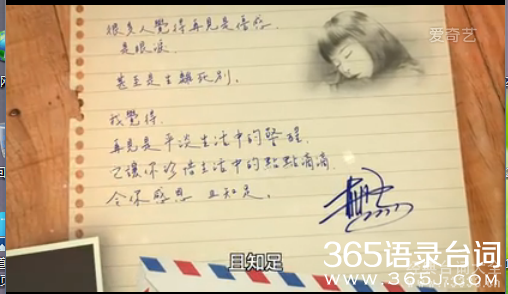 爱奇艺
很多人覺得再見是傷感.
是眼淚.
甚至是生離死別.
我覺得.
再見是平淡生活中的警醒.
它讓你珍惜生活中的點點滴滴.
令你感恩 且知足.
且知足
365语录台词
www.365.com